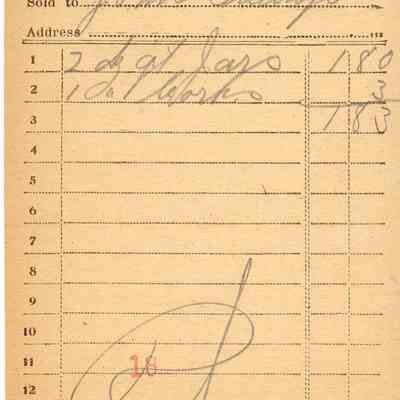 Sold to
Address
1 2 dz qt Jars 1 80
2 1 dz Corks 3
3 1 83
4
5
6
7
8
9
10
11 16
12